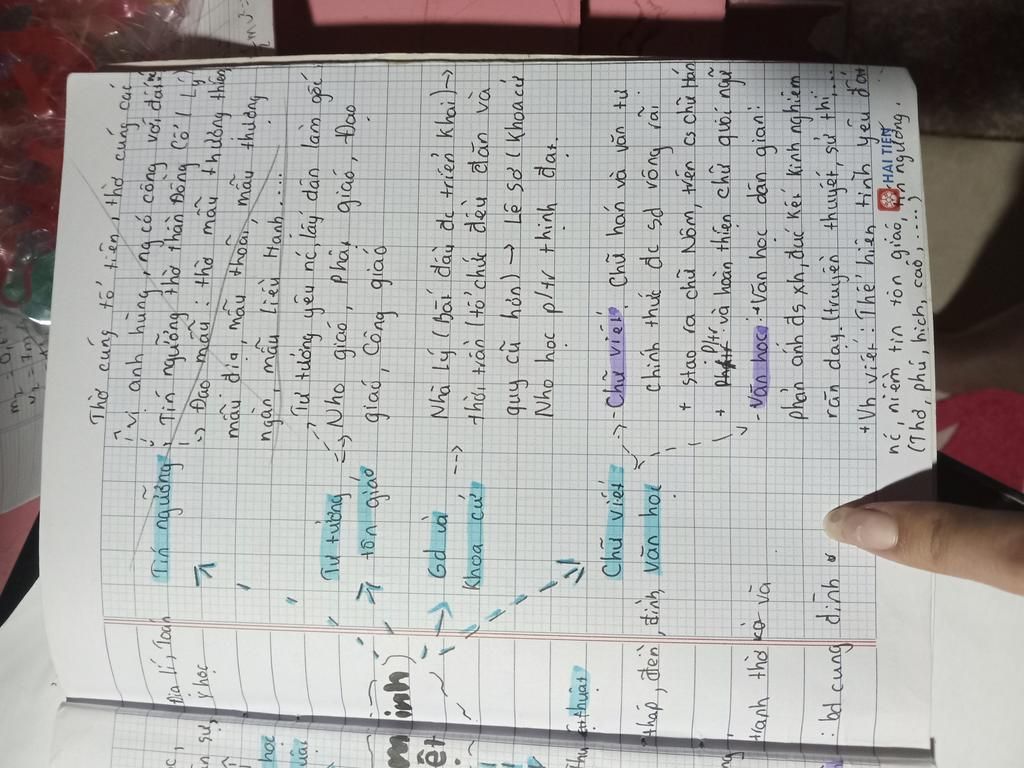 Thờ cúng tổ tiên, thờ cúng các
vị anh hùng, ng có công với đất nc
Tín ngưỡng
Tín ngưỡng thờ thần Đồng Cổ (Lý)
-> Đạo mẫu: thờ mẫu thượng thiên,
mẫu địa, mẫu thoải, mẫu thượng
ngàn, mẫu liễu Hạnh....
Tư tưởng
tôn giáo
Tư tưởng yêu nc, lấy dân làm gốc,
Nho giáo, phật giáo, Đạo
giáo, Công giáo
Gd và
khoa cử
Nhà Lý (bắt đầu đc triển khai) ->
thời trần (tổ chức đều đặn và
quy cũ hơn) -> Lê sơ (khoa cử
Nho học p/tr thịnh đạt.
Chữ viết
Văn học
- Chữ viết: Chữ hán và văn tự
chính thức đc sd rộng rãi
+ stạo ra chữ Nôm, trên cs chữ Hán
+ p/tr và hoàn thiện chữ quốc ngữ
- Văn học: + Văn học dân gian:
phản ánh ds xh, đúc kết kinh nghiệm
răn dạy. (truyền thuyết, sử thi,...
+ Vh viết: Thể hiện tình yêu đất
nc, niềm tin tôn giáo, tín ngưỡng.
(Thơ, phú, hịch, cáo,....)
HẢI TIẾN
Địa lí, Toán
y học
học
minh)
ệt
thuật
tháp, đền, đình,
tranh thờ và
: bd cung đình